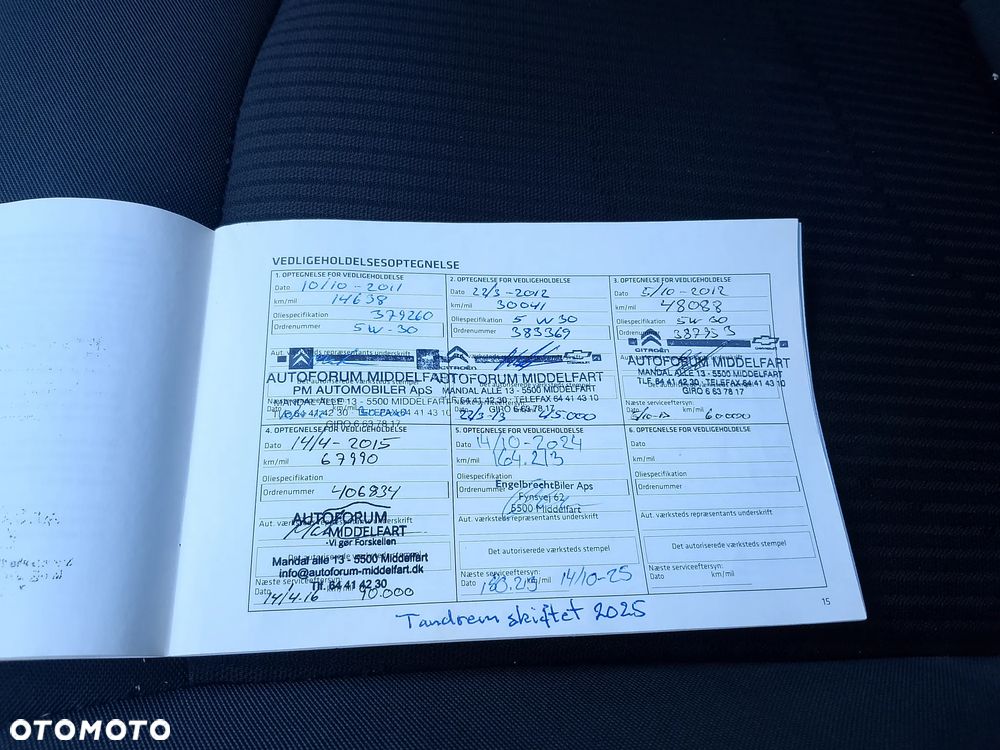 VEDLIGEHOLDELSESOPTEGNELSE
1. OPTEGNELSE FOR VEDLIGEHOLDELSE
Dato 10/10-2011
km/mil 14698
Oliespecifikation 379260
Ordrenummer 5W-30
Aut. værksteds repræsentants underskrift
AUTOFORUM MIDDELFART
PM AUTOMOBILER ApS
MANDAL ALLE 13 - 5500 MIDDELFART
GIRO 6 63 78 17
2. OPTEGNELSE FOR VEDLIGEHOLDELSE
Dato 22/3-2012
km/mil 30041
Oliespecifikation 5 W 30
Ordrenummer 383369
AUTOFORUM MIDDELFART
MANDAL ALLE 13 - 5500 MIDDELFART
TLF. 64 41 42 30 · TELEFAX 64 41 43 10
GIRO 6 63 78 17
22/3-13 45000
3. OPTEGNELSE FOR VEDLIGEHOLDELSE
Dato 5/10-2012
km/mil 48088
Oliespecifikation 5W-30
Ordrenummer
CITROËN
AUTOFORUM MIDDELFART
MANDAL ALLE 13 - 5500 MIDDELFART
TLF. 64 41 42 30 · TELEFAX 64 41 43 10
GIRO 6 63 78 17
Næste serviceeftersyn:
5/10-13 km/mil 60000
4. OPTEGNELSE FOR VEDLIGEHOLDELSE
Dato 14/4-2015
km/mil 67990
Oliespecifikation
Ordrenummer 406834
AUTOFORUM
MIDDELFART
·Vi gør Forskellen
Aut. værksteds
Det autoriserede værksteds stempel
Mandal alle 13 - 5500 Middelfart
info@autoforum-middelfart.dk
Tlf. 64 41 42 30
Næste serviceeftersyn:
Dato 14/4.16 90.000
5. OPTEGNELSE FOR VEDLIGEHOLDELSE
Dato 14/10-2024
km/mil 164.213
Oliespecifikation
Ordrenummer
EngelbrechtBiler Aps
Fynsvej 62
5500 Middelfart
Aut. værksteds repræsentants underskrift
Det autoriserede værksteds stempel
Næste serviceeftersyn:
Dato km/mil 14/10-25
6. OPTEGNELSE FOR VEDLIGEHOLDELSE
Dato
km/mil
Oliespecifikation
Ordrenummer
Aut. værksteds repræsentants underskrift
Det autoriserede værksteds stempel
Næste serviceeftersyn:
Dato km/mil
15
Tandrem skiftet 2025
OTOMOTO